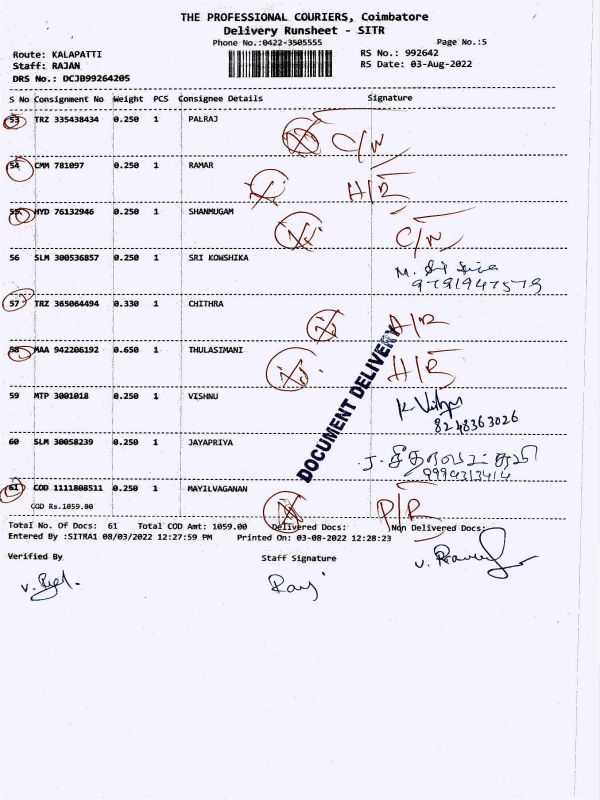 THE PROFESSIONAL COURIERS, Coimbatore
Delivery Runsheet - SITR
Phone No.:0422-3505555
Page No.:5
Route: KALAPATTI
RS No.: 992642
Staff: RAJAN
RS Date: 03-Aug-2022
DRS No.: DCJB99264205
S No Consignment No Weight PCS Consignee Details Signature
53 TRZ 335438434 0.250 1 PALRAJ
C/N
54 CMM 781097 0.250 1 RAMAR
H/R
55 HYD 76132946 0.250 1 SHANMUGAM
C/N
56 SLM 300536857 0.250 1 SRI KOWSHIKA
M.
9791947579
57 TRZ 365064494 0.330 1 CHITHRA
A/R
58 MAA 942206192 0.650 1 THULASIMANI
H/R
DOCUMENT DELIVERY
59 MTP 3001018 0.250 1 VISHNU
8248363026
60 SLM 30058239 0.250 1 JAYAPRIYA
9994313414
61 COD 1111808511 0.250 1 MAYILVAGANAN
COD Rs.1059.00
P/R
Total No. Of Docs: 61 Total COD Amt: 1059.00 Delivered Docs: Non Delivered Docs:
Entered By :SITRA1 08/03/2022 12:27:59 PM Printed On: 03-08-2022 12:28:23
Verified By Staff Signature